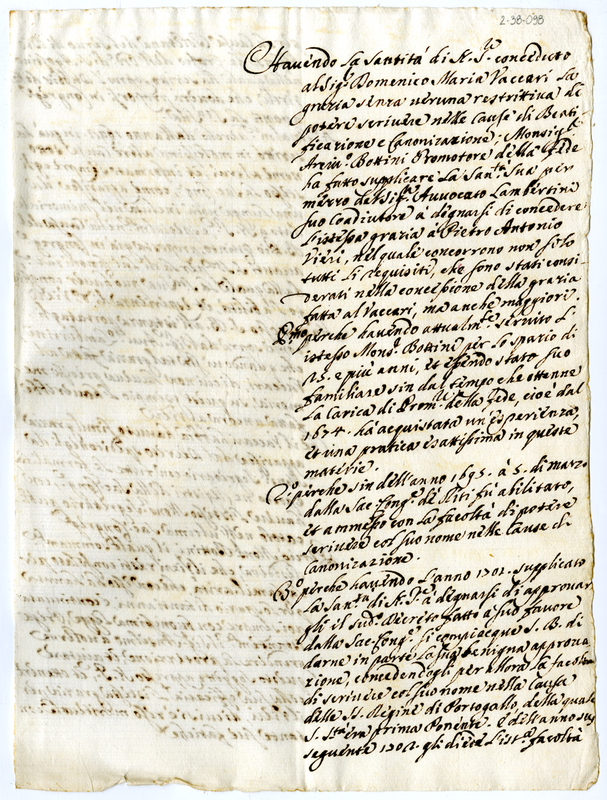 2-38-098
Havendo La Santità di N. S.re conceduto
al Sig.r Domenico Maria Vaccari La
grazia senza veruna restrittiva di
potere scrivere nelle Cause di Beati
ficazione e Canonizazione; Monsig.r
Arciv.o Bottini Promotore della Fede
ha fatto supplicare La San.tà Sua per
mezzo del Sig.r Avvocato Lambertini
suo Coadiutore à degnarsi di concedere
L'istessa grazia à Pietro Antonio
Vieri, nel quale concorrono non solo
tutti Li requisiti, che sono stati consi
derati nella concessione della grazia
fatta al Vaccari, ma anche maggiori.
P.mo perche havendo attualm.te servito L'
istesso Mons.r Bottini per Lo spazio di
25. e più anni, et essendo stato suo
familiare sin dal tempo che ottenne
La Carica di Prom.re della Fede, cioè dal
1674. hà acquistata un'esperienza,
et una pratica esattissima in queste
materie.
2.o perche sin dell'anno 1695. à 5. di marzo
dalla Sac. Cong.e de Riti fù abilitato,
et ammesso con La facoltà di potere
scrivere col suo nome nelle Cause di
Canonizazione.
3.o perche havendo L'anno 1701. supplicato
La San.tà di N. S.re à degnarsi di approvar
gli il sud.o Decreto fatto à suo favore
dalla Sac. Cong.e si compiacque S. B. di
darne in parte La sua benigna approva
zione, concedendogli per allora La facoltà
di scrivere col suo nome nella Causa
delle SS. Regine di Portogallo, della quale
S. S.tà era prima Ponente. E dell'anno sus
seguente 1702. gli diede L'ist.a facoltà